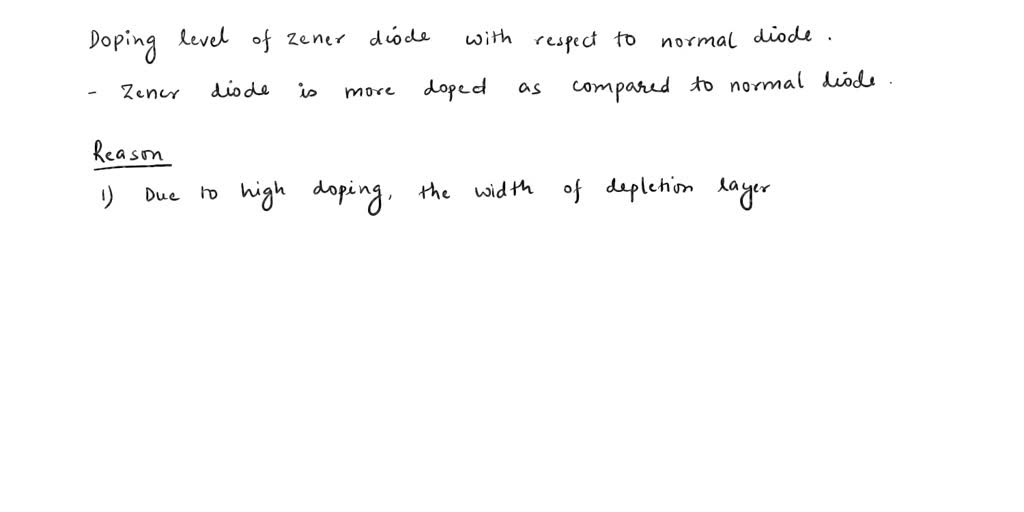 Doping level of zener diode with respect to normal diode.
- Zener diode is more doped as compared to normal diode.
Reason
1) Due to high doping, the width of depletion layer